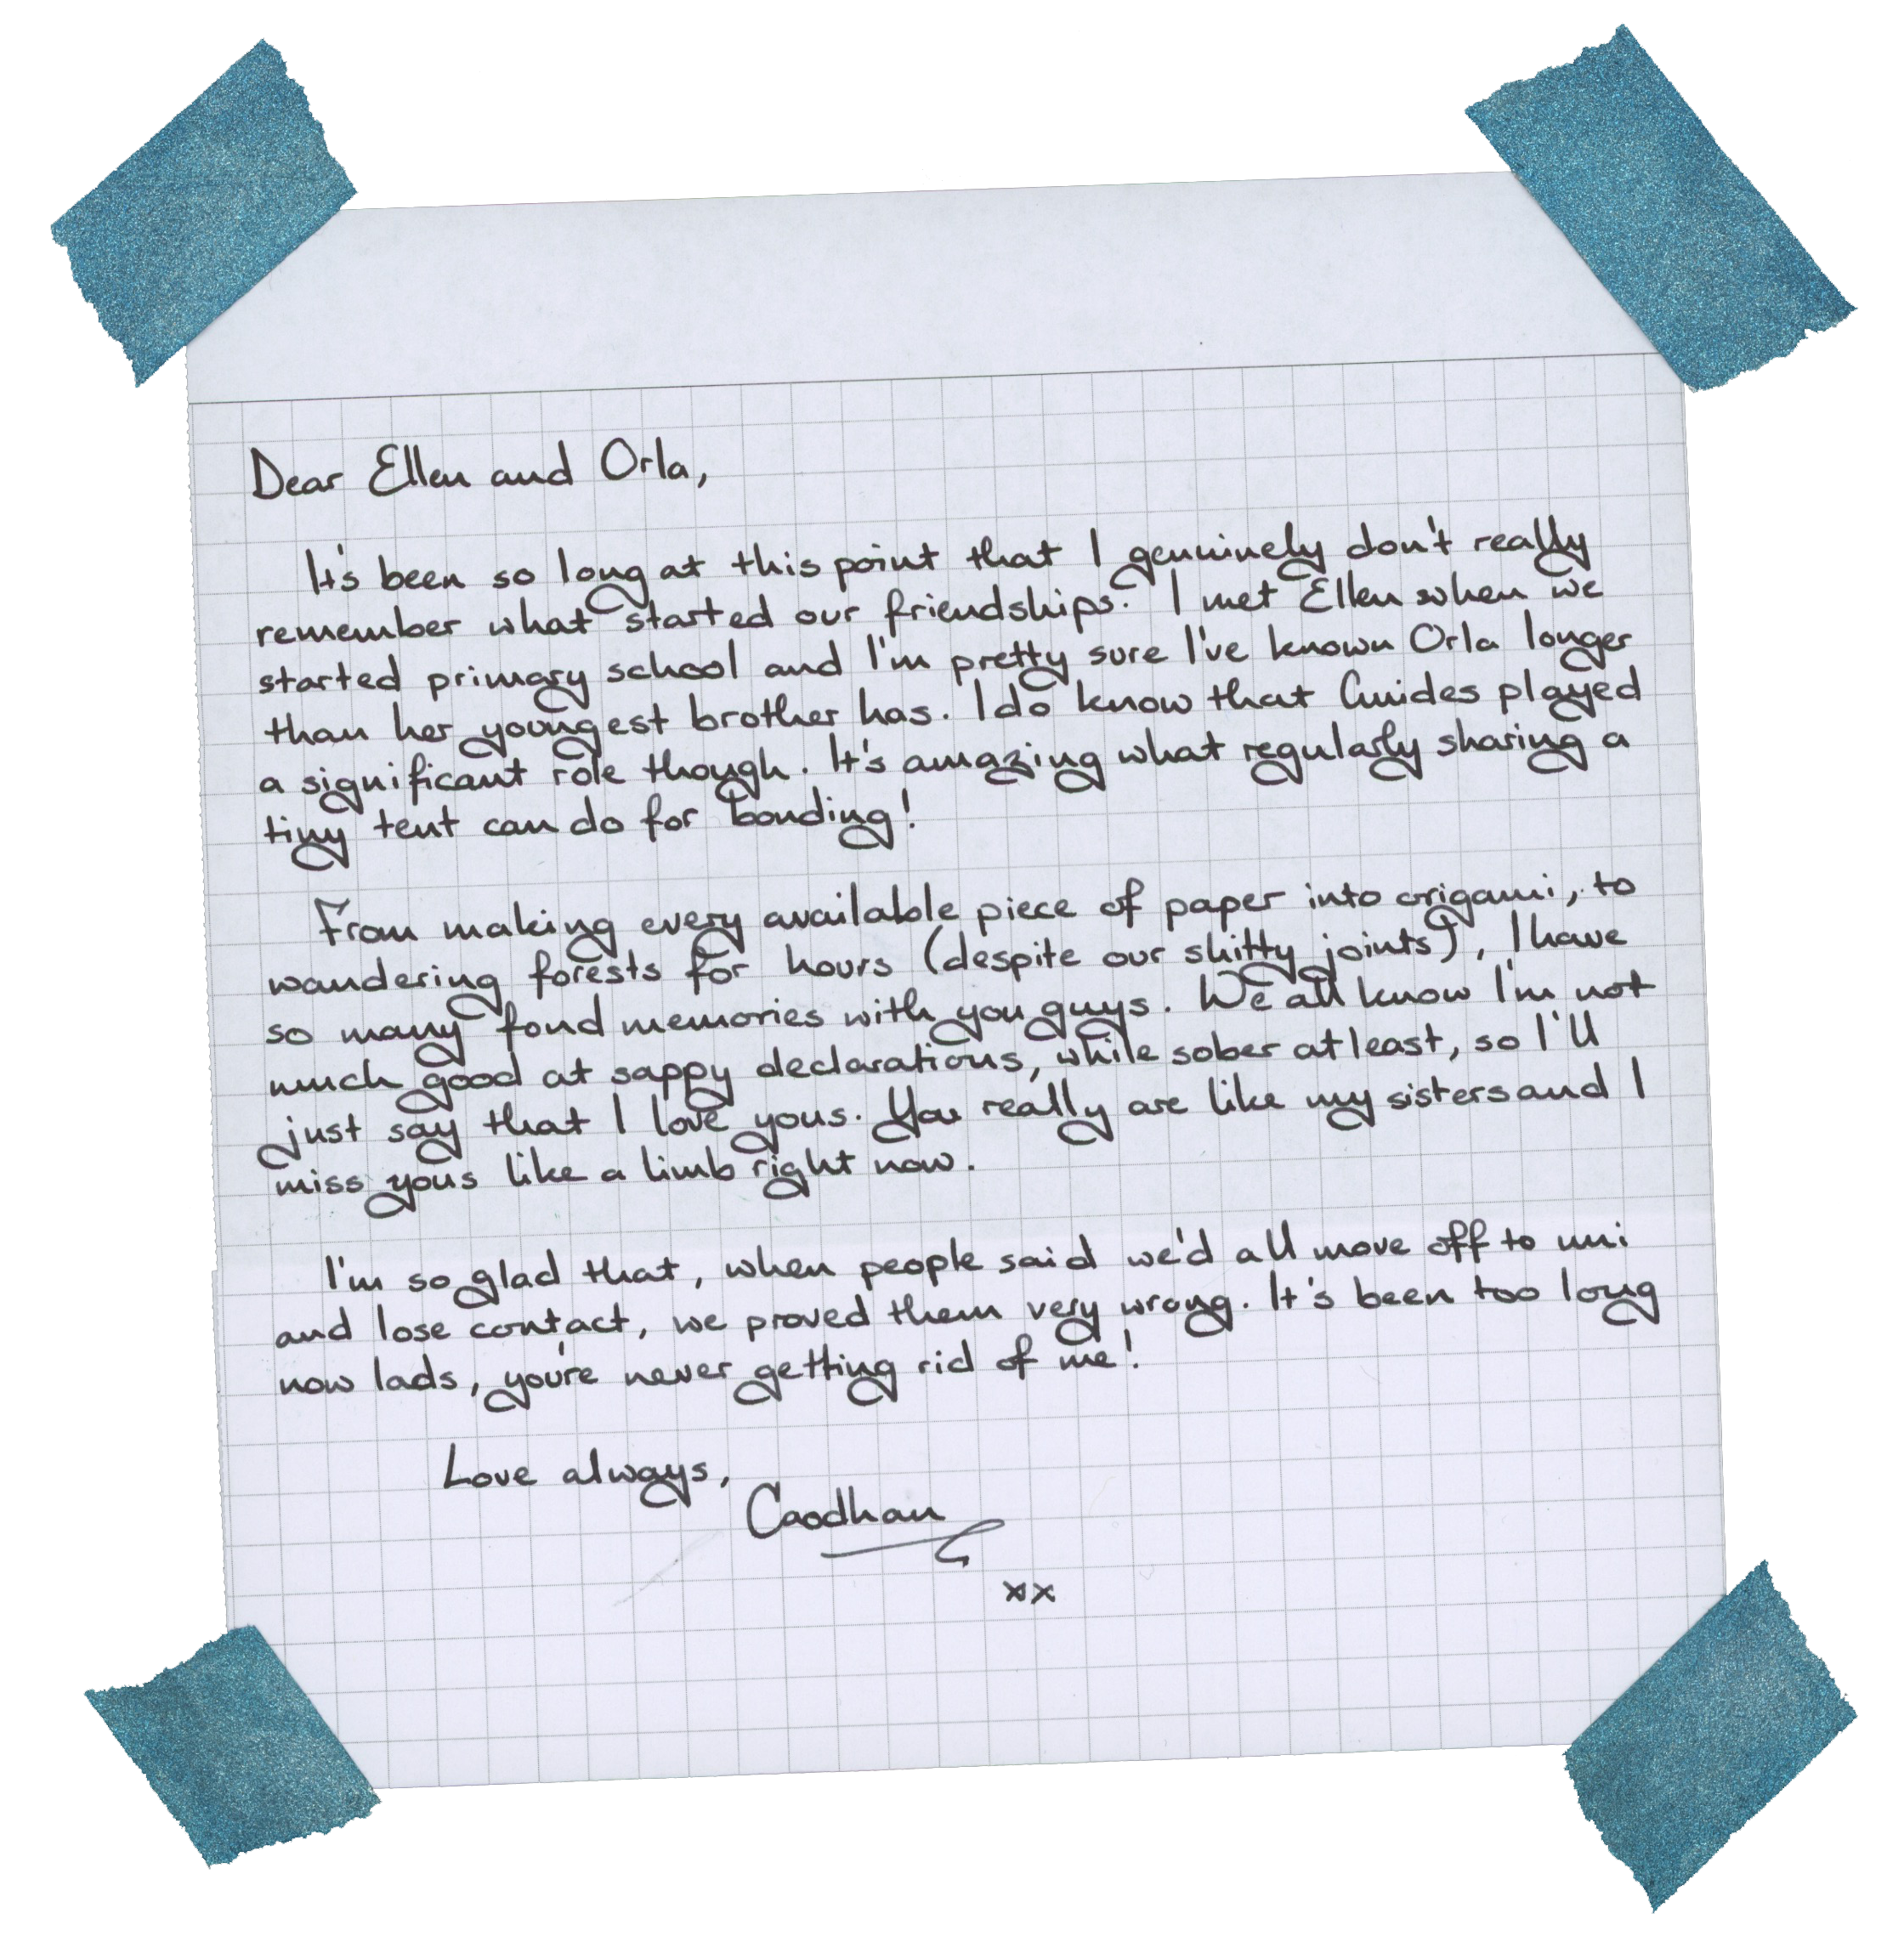 Dear Ellen and Orla,
It's been so long at this point that I genuinely don't really
remember what started our friendships. I met Ellen when we
started primary school and I'm pretty sure I've known Orla longer
than her youngest brother has. I do know that Guides played
a significant role though. It's amazing what regularly sharing a
tiny tent can do for bonding!
From making every available piece of paper into origami, to
wandering forests for hours (despite our shitty joints), I have
so many fond memories with you guys. We all know I'm not
much good at sappy declarations, while sober at least, so I'll
just say that I love yous. You really are like my sisters and I
miss yous like a limb right now.
I'm so glad that, when people said we'd all move off to uni
and lose contact, we proved them very wrong. It's been too long
now lads, you're never getting rid of me!
Love always,
Caodhan
xx